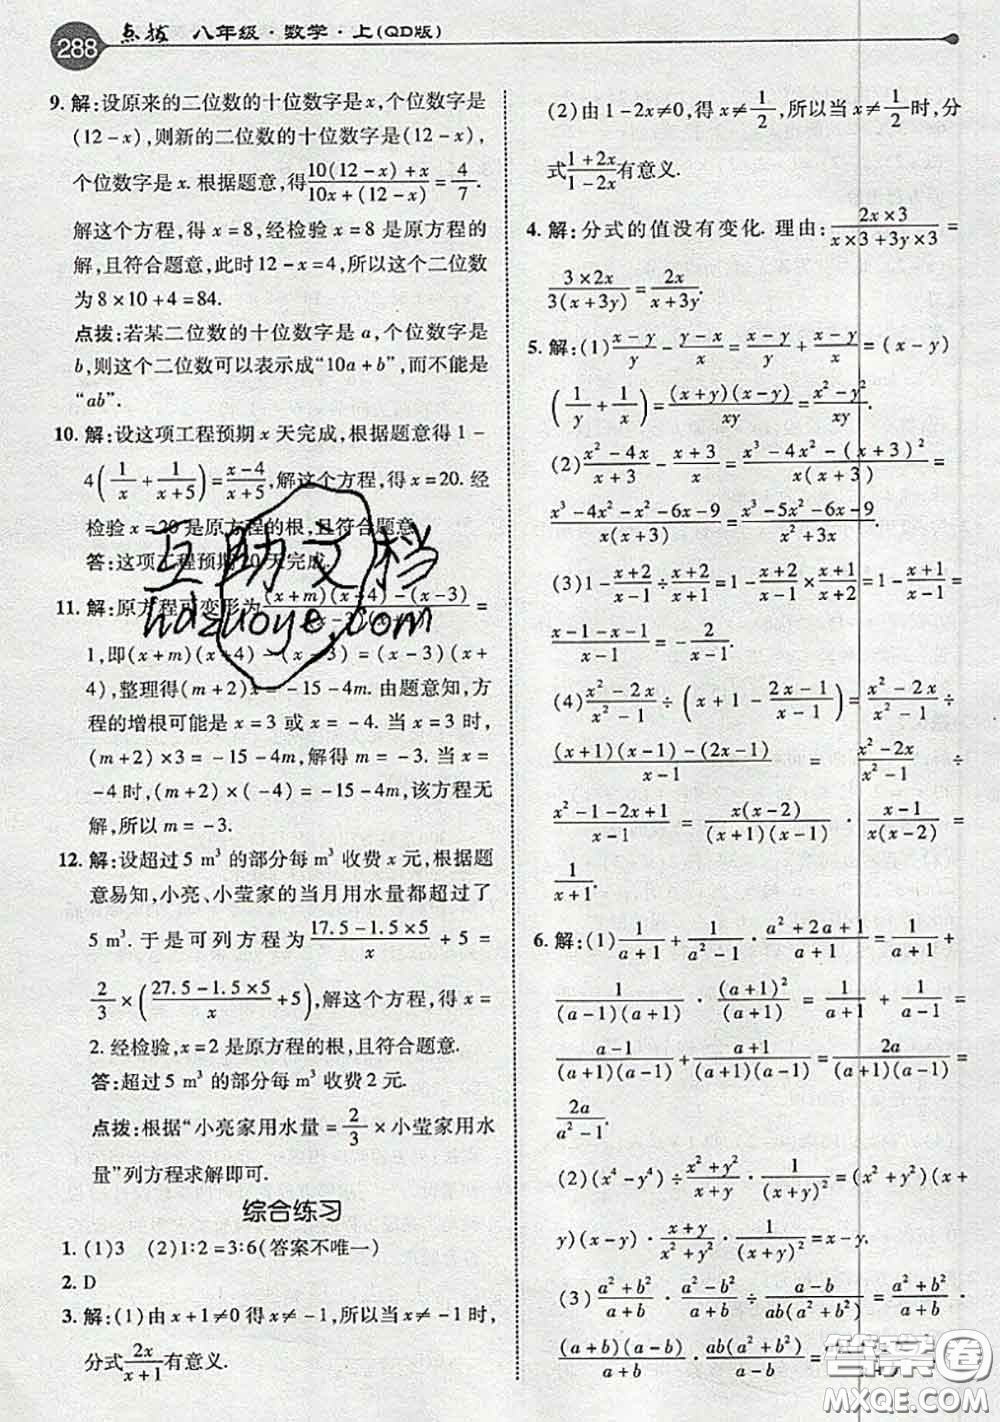 288 点拨 八年级·数学·上(QD版)
9. 解:设原来的二位数的十位数字是x,个位数字是
(12-x),则新的二位数的十位数字是(12-x),
个位数字是x. 根据题意,得 \frac{10(12-x)+x}{10x+(12-x)}=\frac{4}{7}.
解这个方程,得x=8,经检验x=8是原方程的
解,且符合题意,此时12-x=4,所以这个二位数
为8×10+4=84.
点拨:若某二位数的十位数字是a,个位数字是
b,则这个二位数可以表示成“10a+b”,而不能是
“ab”.
10. 解:设这项工程预期x天完成,根据题意得1-
4(\frac{1}{x}+\frac{1}{x+5})=\frac{x-4}{x+5},解这个方程,得x=20. 经
检验x=20是原方程的根,且符合题意.
答:这项工程预期20天完成.
11. 解:原方程可变形为 \frac{(x+m)(x+4)-(x-3)}{} =
1,即(x+m)(x+4)-(x-3)=(x-3)(x+
4),整理得(m+2)x=-15-4m. 由题意知,方
程的增根可能是x=3或x=-4. 当x=3时,
(m+2)×3=-15-4m,解得m=-3. 当x=
-4时,(m+2)×(-4)=-15-4m,该方程无
解,所以m=-3.
12. 解:设超过5 m³的部分每m³收费x元,根据题
意易知,小亮、小莹家的当月用水量都超过了
5 m³. 于是可列方程为 \frac{17.5-1.5×5}{x}+5=
\frac{2}{3}×(\frac{27.5-1.5×5}{x}+5),解这个方程,得x=
2. 经检验,x=2是原方程的根,且符合题意.
答:超过5 m³的部分每m³收费2元.
点拨:根据“小亮家用水量=\frac{2}{3}×小莹家用水
量”列方程求解即可.
综合练习
1. (1)3 (2)1:2=3:6(答案不唯一)
2. D
3. 解:(1)由x+1≠0得x≠-1,所以当x≠-1时,
分式\frac{x}{x+1}有意义.
(2)由1-2x≠0,得x≠\frac{1}{2},所以当x≠\frac{1}{2}时,分
式\frac{1+2x}{1-2x}有意义.
4. 解:分式的值没有变化. 理由:\frac{2x×3}{x×3+3y×3}=
\frac{3×2x}{3(x+3y)}=\frac{2x}{x+3y}.
5. 解:(1)\frac{x-y}{y}-\frac{y-x}{x}=\frac{x-y}{y}+\frac{x-y}{x}=(x-y)
(\frac{1}{y}+\frac{1}{x})=\frac{(x+y)(x-y)}{xy}=\frac{x²-y²}{xy}.
(2)\frac{x²-4x}{x+3}-\frac{x+3}{x}=\frac{x³-4x²-(x+3)²}{x(x+3)}=
\frac{x³-4x²-x²-6x-9}{x(x+3)}=\frac{x³-5x²-6x-9}{x(x+3)}.
(3)1-\frac{x+2}{x-1}÷\frac{x+2}{x+1}=1-\frac{x+2}{x-1}×\frac{x+1}{x+2}=1-\frac{x+1}{x-1}=
\frac{x-1-x-1}{x-1}=-\frac{2}{x-1}.
(4)\frac{x²-2x}{x²-1}÷(x+1-\frac{2x-1}{x-1})=\frac{x²-2x}{x²-1}÷
\frac{(x+1)(x-1)-(2x-1)}{x-1}=\frac{x²-2x}{x²-1}÷
\frac{x²-1-2x+1}{x-1}=\frac{x(x-2)}{(x+1)(x-1)}·\frac{x-1}{x(x-2)}=
\frac{1}{x+1}.
6. 解:(1)\frac{1}{a+1}+\frac{1}{a²-1}·\frac{a²+2a+1}{a+1}=\frac{1}{a+1}+
\frac{1}{(a-1)(a+1)}·\frac{(a+1)²}{a+1}=\frac{1}{a+1}+\frac{1}{a-1}=
\frac{a-1}{(a+1)(a-1)}+\frac{a+1}{(a+1)(a-1)}=\frac{2a}{(a+1)(a-1)}=
\frac{2a}{a²-1}.
(2)(x⁴-y⁴)÷\frac{x²+y²}{x+y}·\frac{1}{(x+y)²}=(x²+y²)(x+
y)(x-y)·\frac{x+y}{x²+y²}·\frac{1}{(x+y)²}=x-y.
(3)\frac{a²+b²}{a+b}÷\frac{a-b}{ab(a²+b²)}·\frac{a-b}{a²+b²}=\frac{a²+b²}{a+b}·
互助文档
hdzuoye.com
答案圈
MXQE.COM